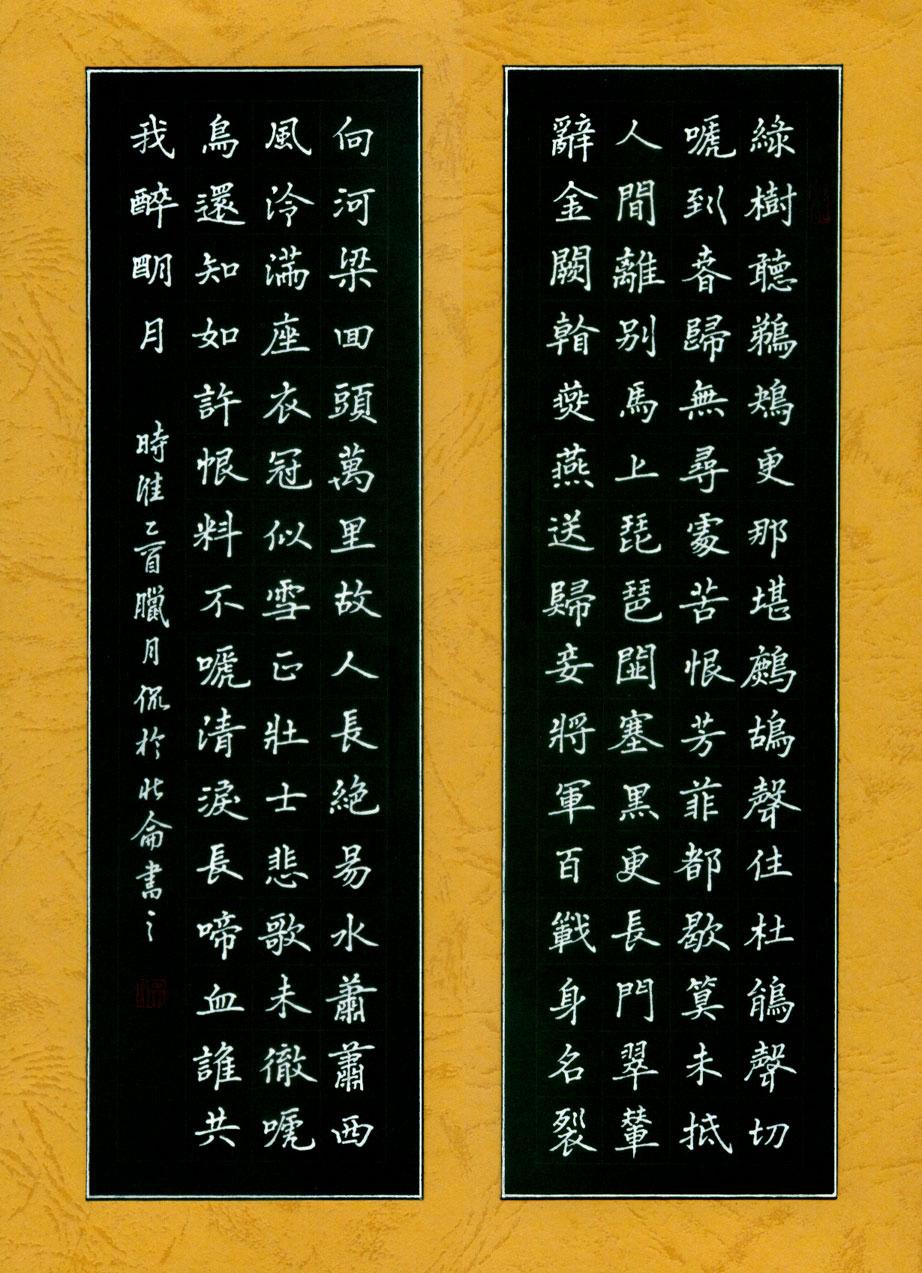 綠樹聽鵜鴂更那堪鷓鴣聲住杜鵑聲切
嗁到春歸無尋處苦恨芳菲都歇算未抵
人間離別馬上琵琶關塞黑更長門翠輦
辭金闕看燕燕送歸妾將軍百戰身名裂
向河梁回頭萬里故人長絕易水蕭蕭西
風冷滿座衣冠似雪正壯士悲歌未徹嗁
鳥還知如許恨料不嗁清淚長啼血誰共
我醉明月 時維乙酉臘月侃於北侖書之